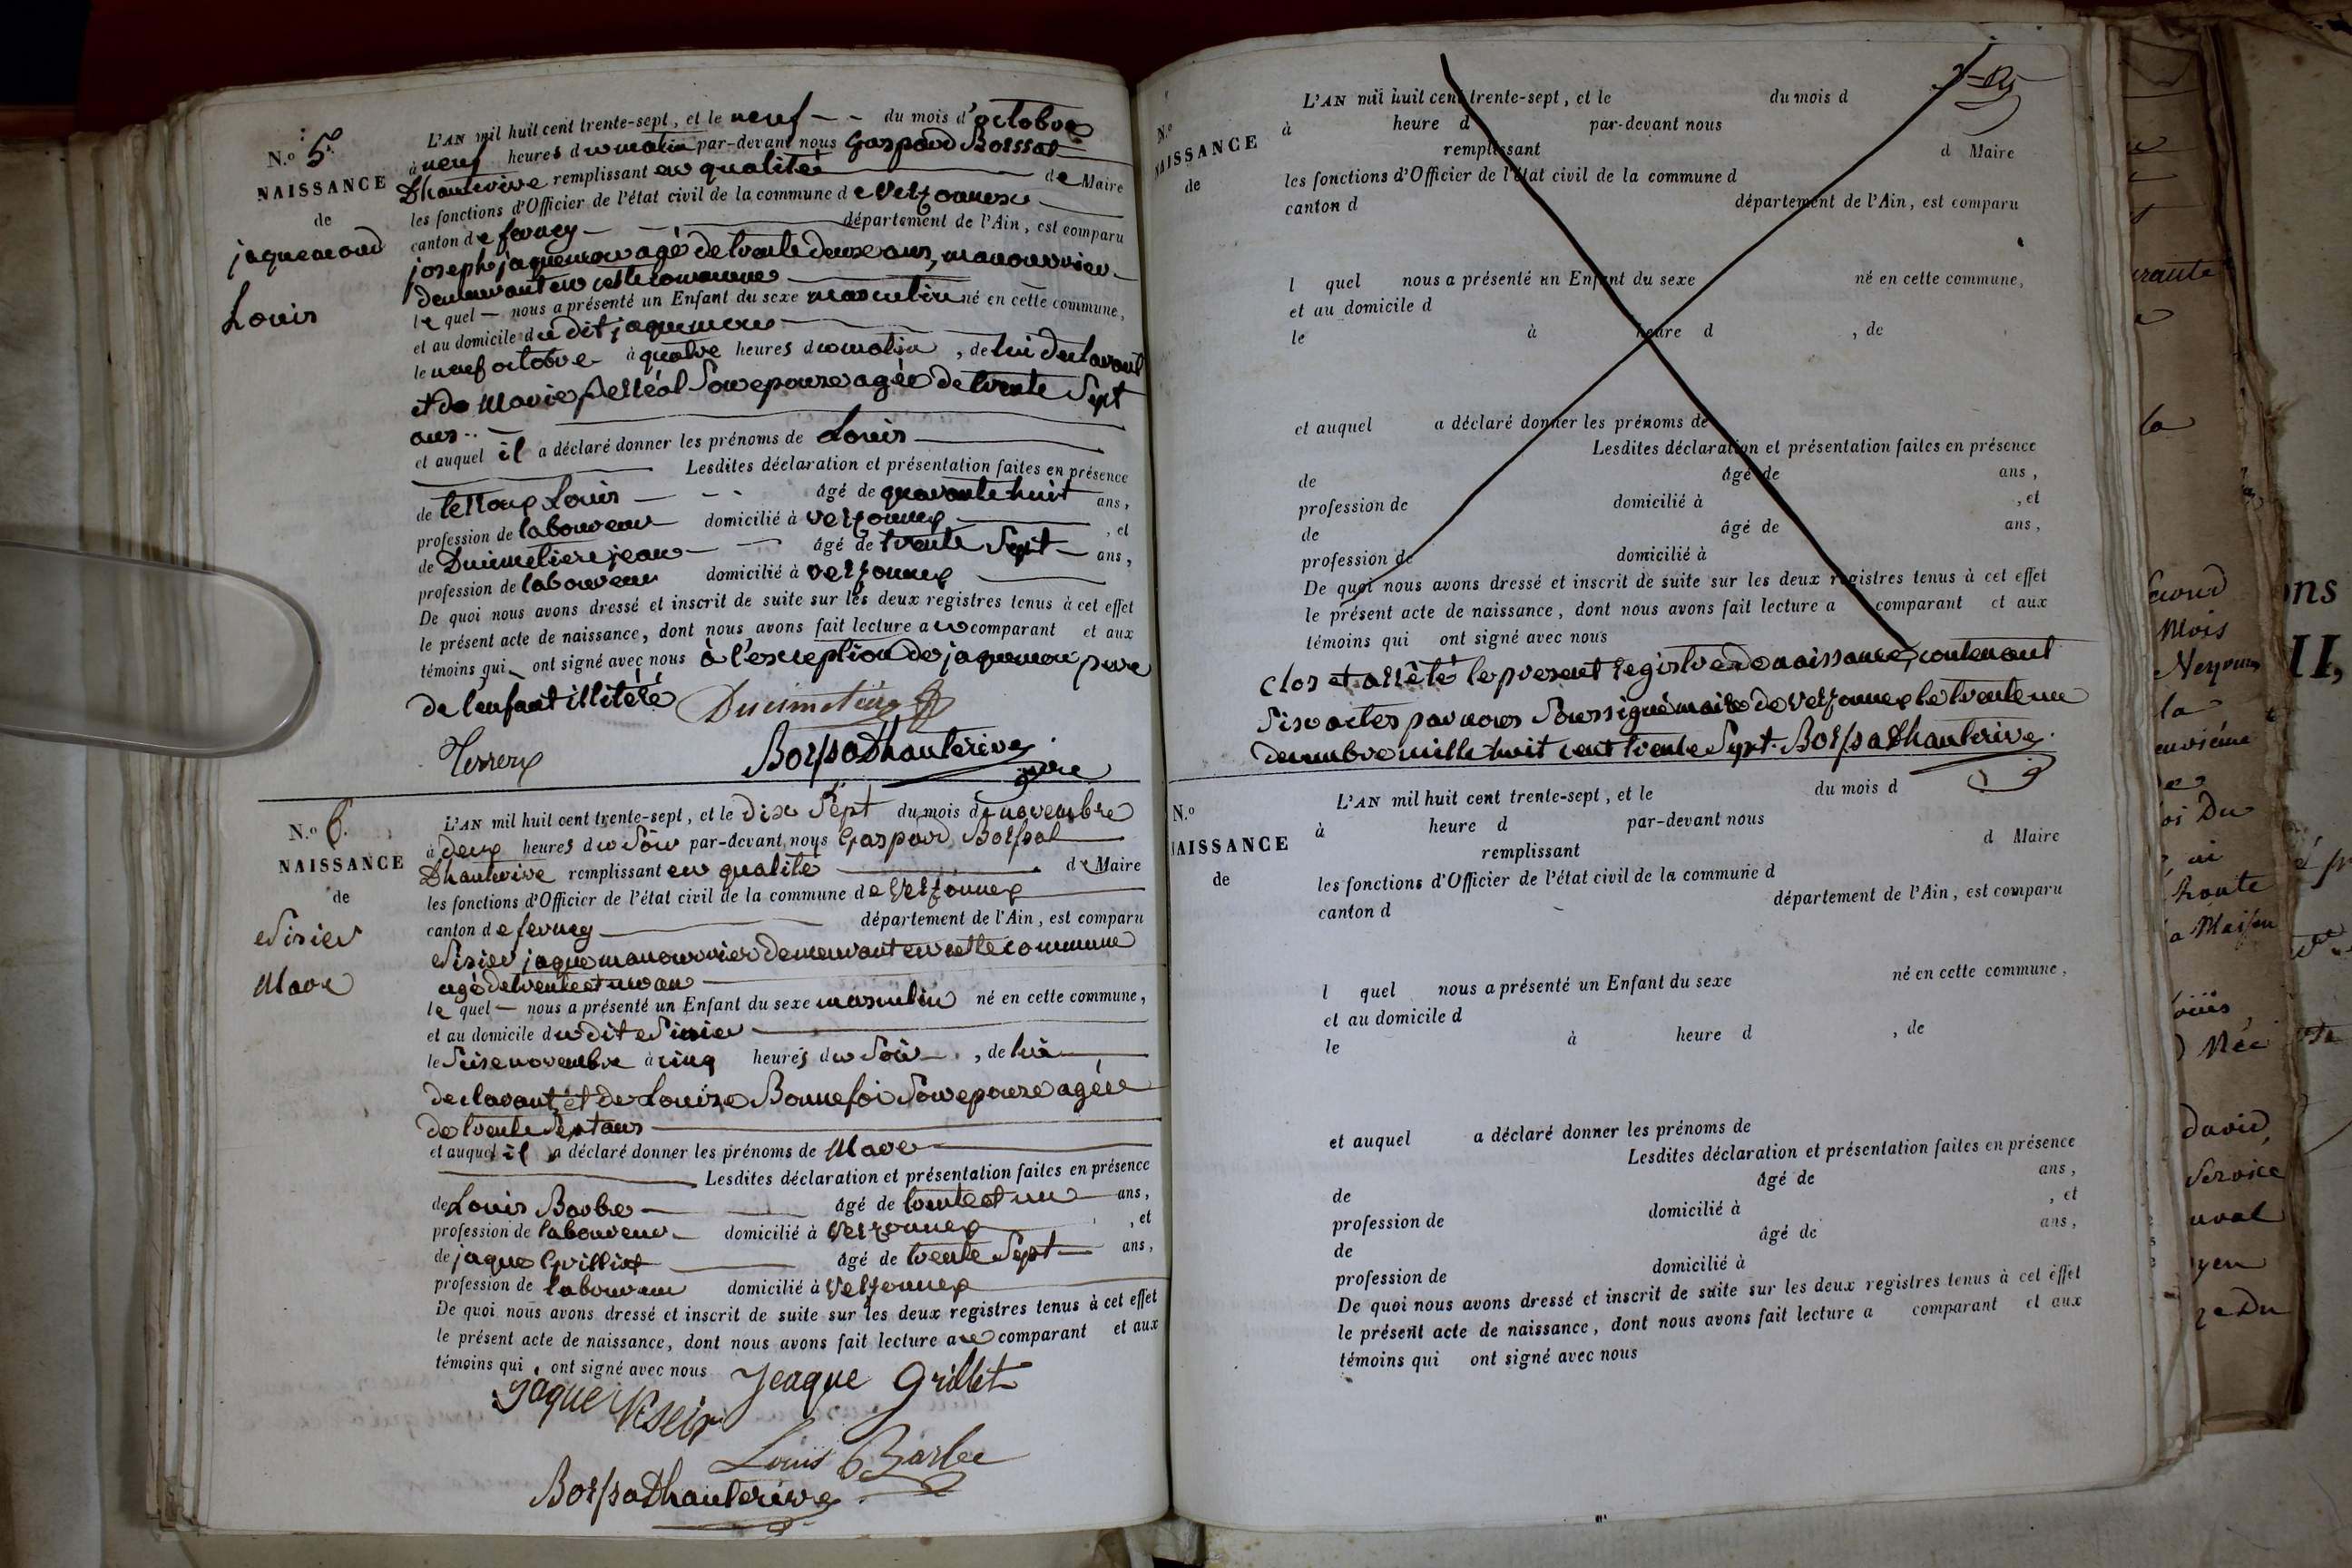 N.o 5.
NAISSANCE
de
jaquemoud
Louis
L'AN mil huit cent trente-sept, et le neuf du mois d'octobre
à neuf heures du matin par-devant nous Gaspard Boissat
Dhauterive remplissant en qualité de Maire
les fonctions d'Officier de l'état civil de la commune de Versonnex
canton de ferney département de l'Ain, est comparu
joseph jaquemou agé de trente deux ans, manouvrier
demeurant en cette commune
le quel nous a présenté un Enfant du sexe masculin né en cette commune,
et au domicile du dit jaquemou
le neuf octobre à quatre heures du matin, de lui declarant
et de Marie son epouse agée de trente Sept
ans
et auquel il a déclaré donner les prénoms de Louis
Lesdites déclaration et présentation faites en présence
de Louis âgé de quarante huit ans,
profession de laboureur domicilié à Versonnex, et
de Ducimetiere jean âgé de trente Sept ans,
profession de laboureur domicilié à Versonnex
De quoi nous avons dressé et inscrit de suite sur les deux registres tenus à cet effet
le présent acte de naissance, dont nous avons fait lecture au comparant et aux
témoins qui ont signé avec nous à l'exception de jaquemou pere
de l'enfant illitéré Ducimetière
Boissa Dhauterive
N.o 6.
NAISSANCE
de
Marc
L'AN mil huit cent trente-sept, et le dix Sept du mois de novembre
à deux heures du Soir par-devant nous Gaspard Boissat
Dhauterive remplissant en qualité de Maire
les fonctions d'Officier de l'état civil de la commune de Versonnex
canton de ferney département de l'Ain, est comparu
jaque manouvrier demeurant en cette commune
agé de trente et un an
le quel nous a présenté un Enfant du sexe masculin né en cette commune,
et au domicile du dit
le Seise novembre à cinq heures du Soir, de lui
declarant, et de Louise Bonnefoi Son epouse agée
de trente Sept ans
et auquel il a déclaré donner les prénoms de Marc
Lesdites déclaration et présentation faites en présence
de Louis Barbe âgé de trente et un ans,
profession de laboureur domicilié à Versonnex, et
de jaque Grilliet âgé de trente Sept ans,
profession de laboureur domicilié à Versonnex
De quoi nous avons dressé et inscrit de suite sur les deux registres tenus à cet effet
le présent acte de naissance, dont nous avons fait lecture au comparant et aux
témoins qui ont signé avec nous Jeaque Grillet
jaque
Louis Barbe
Boissa Dhauterive
N.o
NAISSANCE
de
L'AN mil huit cent trente-sept, et le du mois d
à heure d par-devant nous
remplissant d Maire
les fonctions d'Officier de l'état civil de la commune d
canton d département de l'Ain, est comparu
l quel nous a présenté un Enfant du sexe né en cette commune,
et au domicile d
le à heure d , de
et auquel a déclaré donner les prénoms de
Lesdites déclaration et présentation faites en présence
de âgé de ans,
profession de domicilié à , et
de âgé de ans,
profession de domicilié à
De quoi nous avons dressé et inscrit de suite sur les deux registres tenus à cet effet
le présent acte de naissance, dont nous avons fait lecture a comparant et aux
témoins qui ont signé avec nous
Clos et arrêté le present registre de naissance, contenant
Six actes par nous Soussigné maire de Versonnex le trente un
decembre mille huit cent trente Sept. Boissa Dhauterive
N.o
NAISSANCE
de
L'AN mil huit cent trente-sept, et le du mois d
à heure d par-devant nous
remplissant d Maire
les fonctions d'Officier de l'état civil de la commune d
canton d département de l'Ain, est comparu
l quel nous a présenté un Enfant du sexe né en cette commune,
et au domicile d
le à heure d , de
et auquel a déclaré donner les prénoms de
Lesdites déclaration et présentation faites en présence
de âgé de ans,
profession de domicilié à , et
de âgé de ans,
profession de domicilié à
De quoi nous avons dressé et inscrit de suite sur les deux registres tenus à cet effet
le présent acte de naissance, dont nous avons fait lecture a comparant et aux
témoins qui ont signé avec nous
la
Mois
la
Du
david
Service